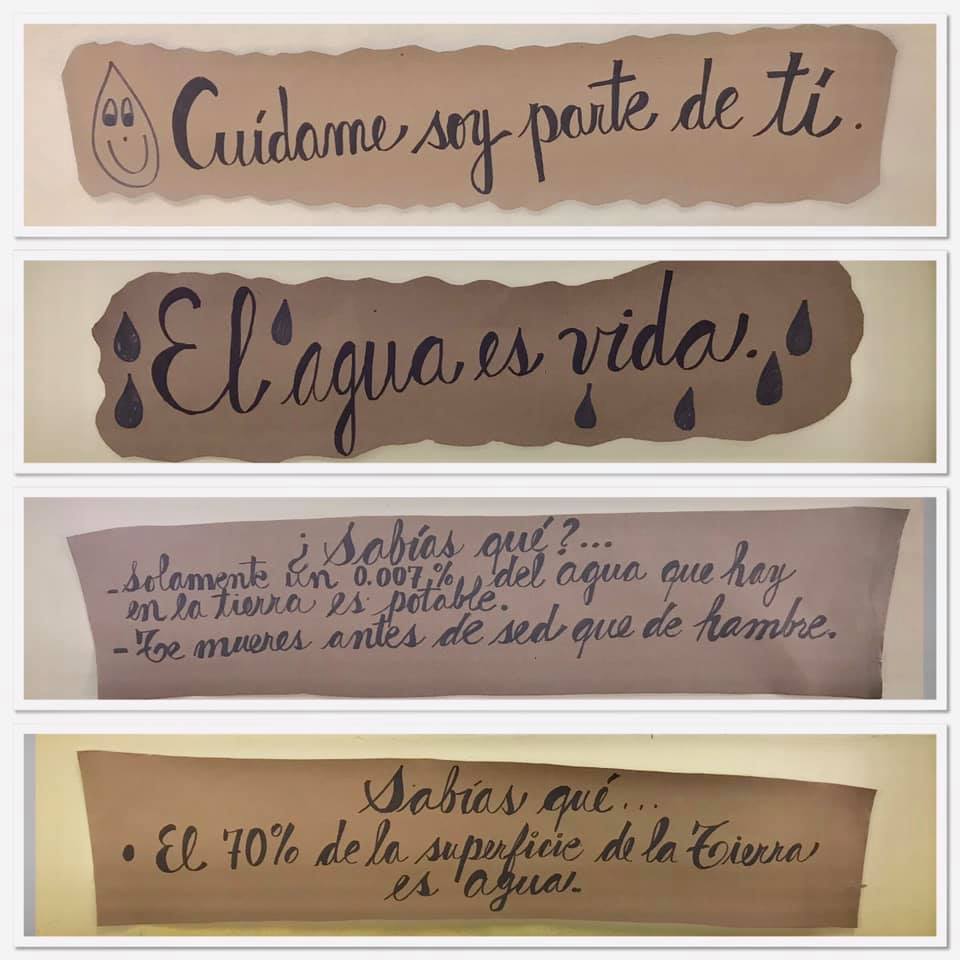 Cuídame soy parte de tí.
El agua es vida.
¿Sabías qué?...
-Solamente un 0.007% del agua que hay
en la tierra es potable.
-Te mueres antes de sed que de hambre.
Sabías qué...
• El 70% de la superficie de la Tierra
es agua.